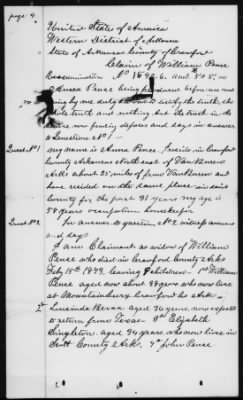 page 4
United States of America
Western District of Arkansas
State of Arkansas County of Crawford
Claim of William Pence
No 6. and
Anna Pence being before me
being by me duly to testify the truth, the
whole truth and nothing but the truth in the
deposes and says in answer
to Question No 1
Quest. No 1. my name is Anna Pence, reside in Crawford
County Arkansas North east of Van Buren
Ark. about 25 miles from Van Buren and
have resided on the same place in said
County for the past 31 years my age is
58 years occupation housekeeper
Quest. No 2. In answer to question No 2 witness answers
and says
I am Claimant as widow of William
Pence who died in Crawford County Ark
Feb 15th 1873. leaving 8 children - 1st William
Pence aged now about 38 years who now lives
at Mountainburg Crawford Co Ark-
2d Lucinda aged 36 years, now expects
to return from Texas- 3rd Elizabeth
Singleton aged 34 years, who now lives in
Scott County Ark, 4th John Pence